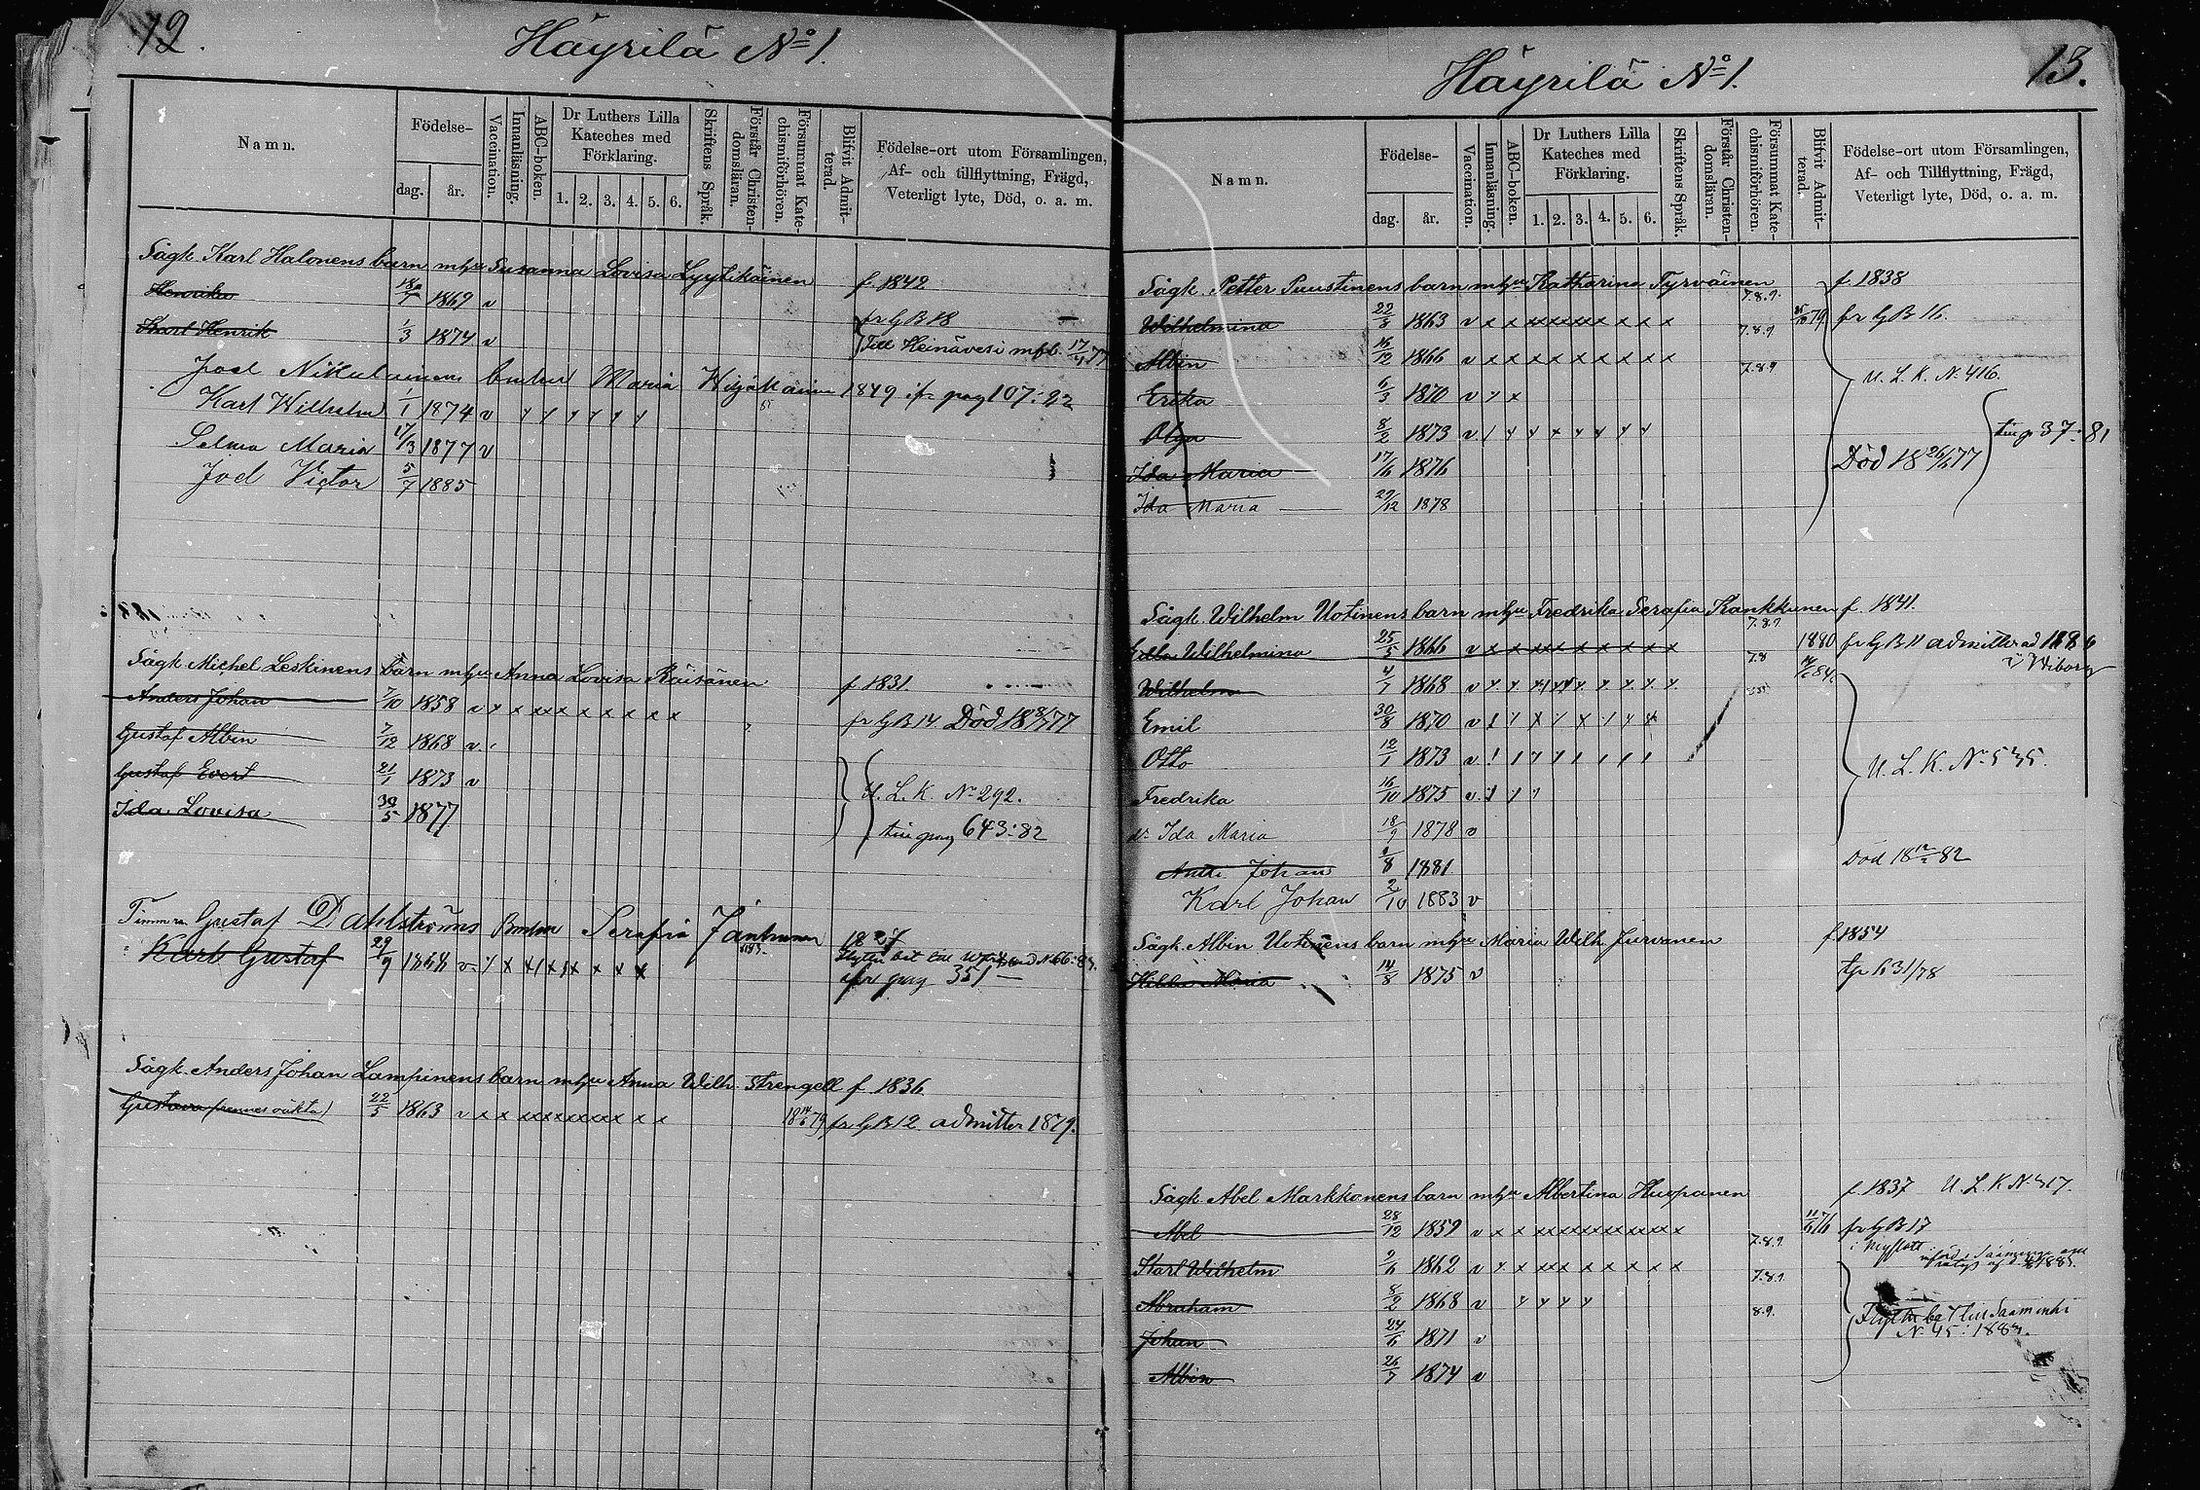 12.
Häyrilä No 1.
Namn.
Födelse-
dag.
år.
Vaccination.
Innanläsning.
ABC-boken.
Dr Luthers Lilla
Kateches med
Förklaring.
1. 2. 3. 4. 5. 6.
Skriftens Språk.
Förstår Christen-
domsläran.
Försummat Kate-
chismiförhören.
Blifvit Admit-
terad.
Födelse-ort utom Församlingen,
Af- och tillflyttning, Frägd,
Veterligt lyte, Död, o. a. m.
Sågk. Karl Halonens barn m hu Susanna Lovisa Lyytikäinen f. 1842
1869 v fr G B 18
Karl Henrik 1/3 1874 v Till Heinävesi mfb. 17/4 77
Joel Nikulainens barn Maria 1849 ifr pag 107:82
Karl Wilhelm 1/1 1874 v
Selma Maria 17/3 1877 v
Joel Victor 5/7 1885
Sågk. Michel Leskinens barn m hu Anna Lovisa Räisänen f. 1831.
Anders Johan 7/10 1858 v x x x x x x x x x x fr G B 14 Död 18 8/1 77
Gustaf Albin 7/12 1868 v
Gustaf Evert 21/1 1873 v U. L. K. No 292.
Ida Lovisa 30/5 1877 till pag 643:82
Timm Gustaf Dahlströms Barn Serafia Jäntunen 1827
Karl Gustaf 29/9 1868 v
ifr pag 351
Sågk. Anders Johan Lampinens barn m hu Anna Wilh. Strengell f. 1836
Gustava 22/5 1863 v x x x x x x x x x x 18 14/6 79 fr G B 12 admitter 1879.
13.
Häyrilä No 1.
Namn.
Födelse-
dag.
år.
Vaccination.
Innanläsning.
ABC-boken.
Dr Luthers Lilla
Kateches med
Förklaring.
1. 2. 3. 4. 5. 6.
Skriftens Språk.
Förstår Christen-
domsläran.
Försummat Kate-
chismiförhören.
Blifvit Admit-
terad.
Födelse-ort utom Församlingen,
Af- och Tillflyttning, Frägd,
Veterligt lyte, Död, o. a. m.
Sågk. Petter Puustinens barn m hu Katharina Tyrväinen f. 1838
Wilhelmina 22/8 1863 v x x x x x x x x x x 7.8.9. fr G B 16.
Albin 16/12 1866 v x x x x x x x x x x 7.8.9
Erika 6/3 1870 v x x 7.8.9 U. L. K. No 416.
Olga 8/2 1873 v till p 37:81
Ida Maria 17/6 1876 Död 18 26/6 77
Ida Maria 29/12 1878
Sågk. Wilhelm Uotinens barn m hu Fredrika Serafia Kankkunen f. 1841.
Wilhelmina 25/5 1866 v x x x x x x x x x x 7.8.9 1880 fr G B 11 admitterad 1886 i Wiborg
Wilhelm 4/7 1868 v 7.8
Emil 30/8 1870 v
Otto 12/1 1873 v U. L. K. No 535.
Fredrika 16/10 1875 v
Ida Maria 18/9 1878 v
Antti Johan 1881 Död 18 82
Karl Johan 2/10 1883 v
Sågk. Albin Uotinens barn m hu Maria Wilh. Jurvanen f 1854
Hilda Maria 14/8 1875 v tp 631/78
Sågk. Abel Markkanens barn m hu Albertina Huupanen f. 1837 U. L. K N. 417.
Abel 28/12 1859 v x x x x x x x x x x fr G B 17
Karl Wilhelm 9/6 1862 v x x x x x x x x x x 7.8.9. i Nyslott
Abraham 8/2 1868 v 7.8.9
Johan 24/6 1871 v 8.9.
Albin 26/7 1874 v